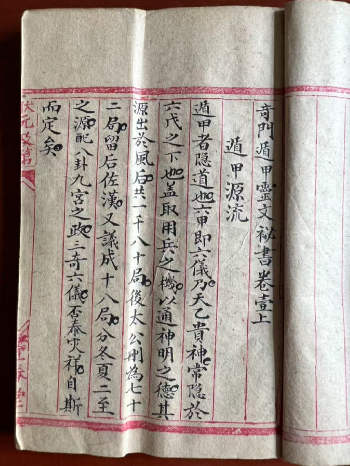 奇門遁甲靈文秘書卷壹上
遁甲源流
遁甲者隱道也六甲即六儀乃天乙貴神常隱於
六戊之下也盖取用兵之機以通神明之德其
源出於風后共一千八十局後太公刪為七十
二局留后佐漢又議成十八局分冬夏二至
之源配八卦九宮之政三奇六儀否泰灾祥自斯
而定矣